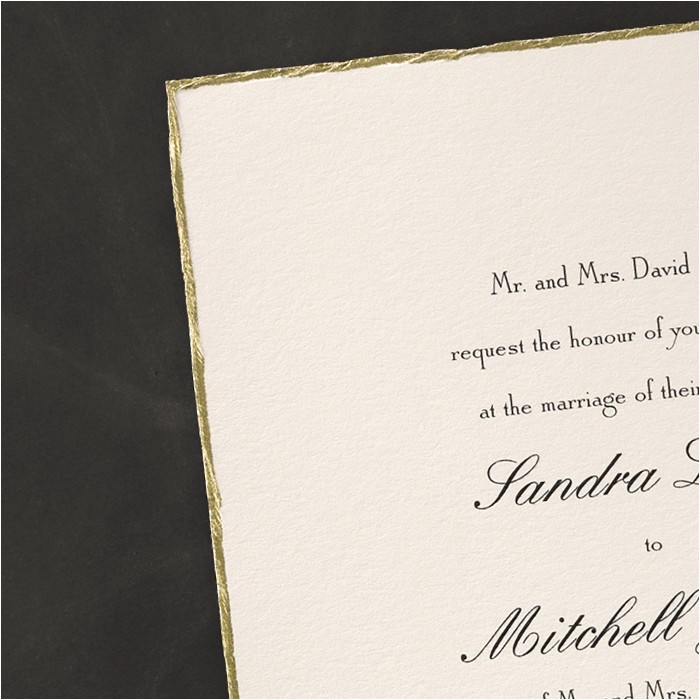 Mr. and Mrs. David
request the honour of
at the marriage of
Sandra
to
Mitchell
Mrs.